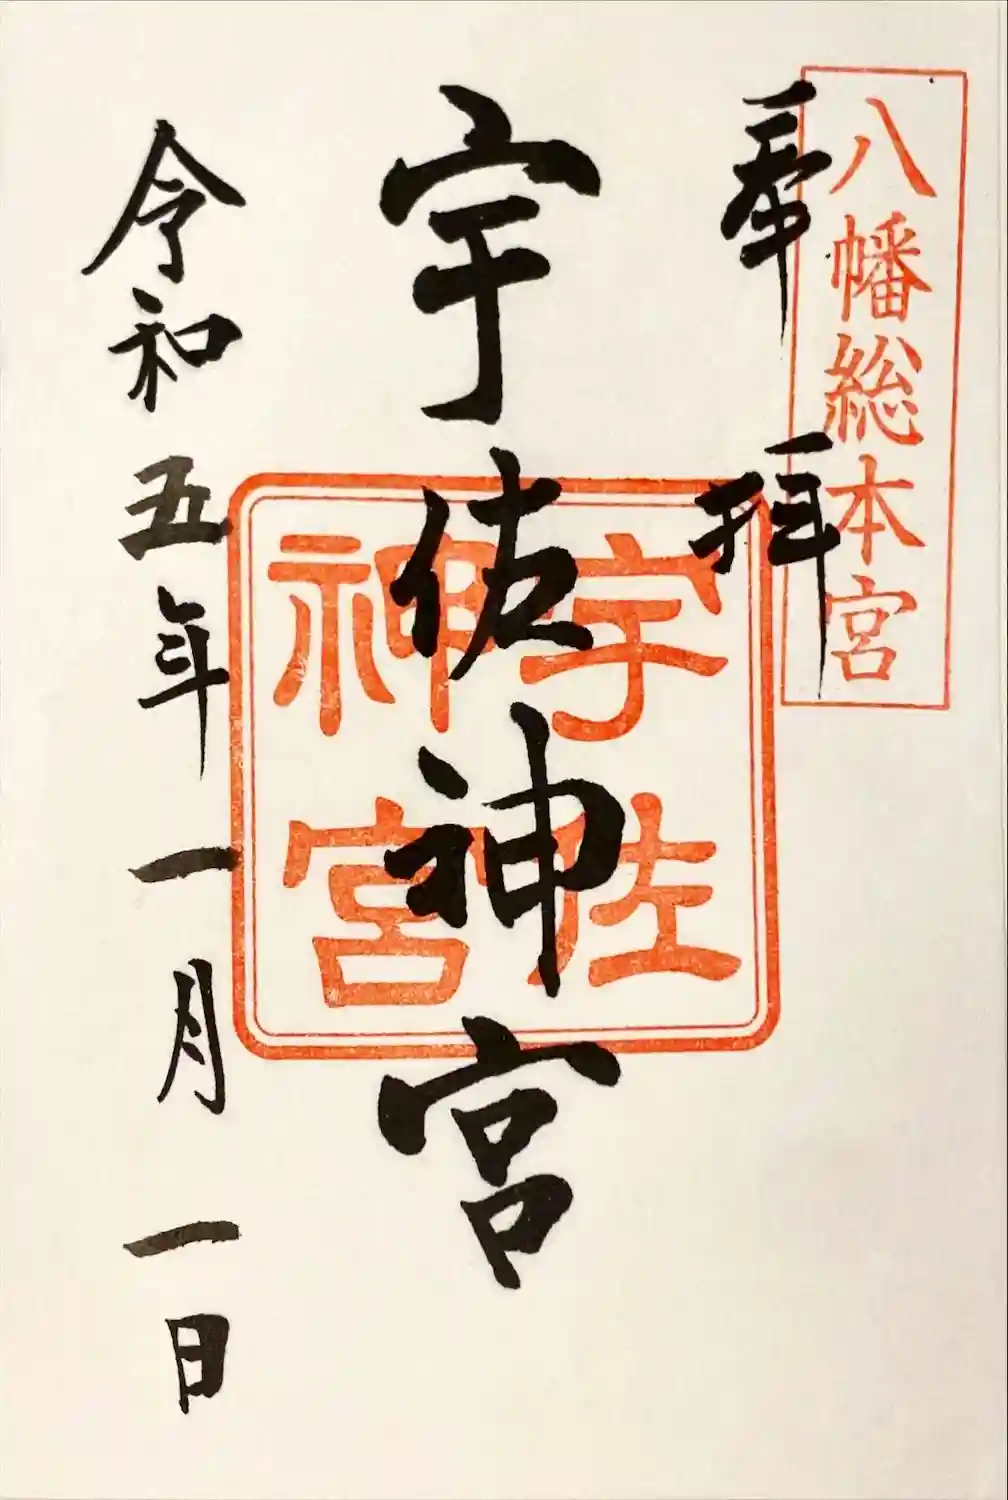 八幡総本宮
奉拝
宇佐神宮
宇佐
神宮
令和五年一月一日